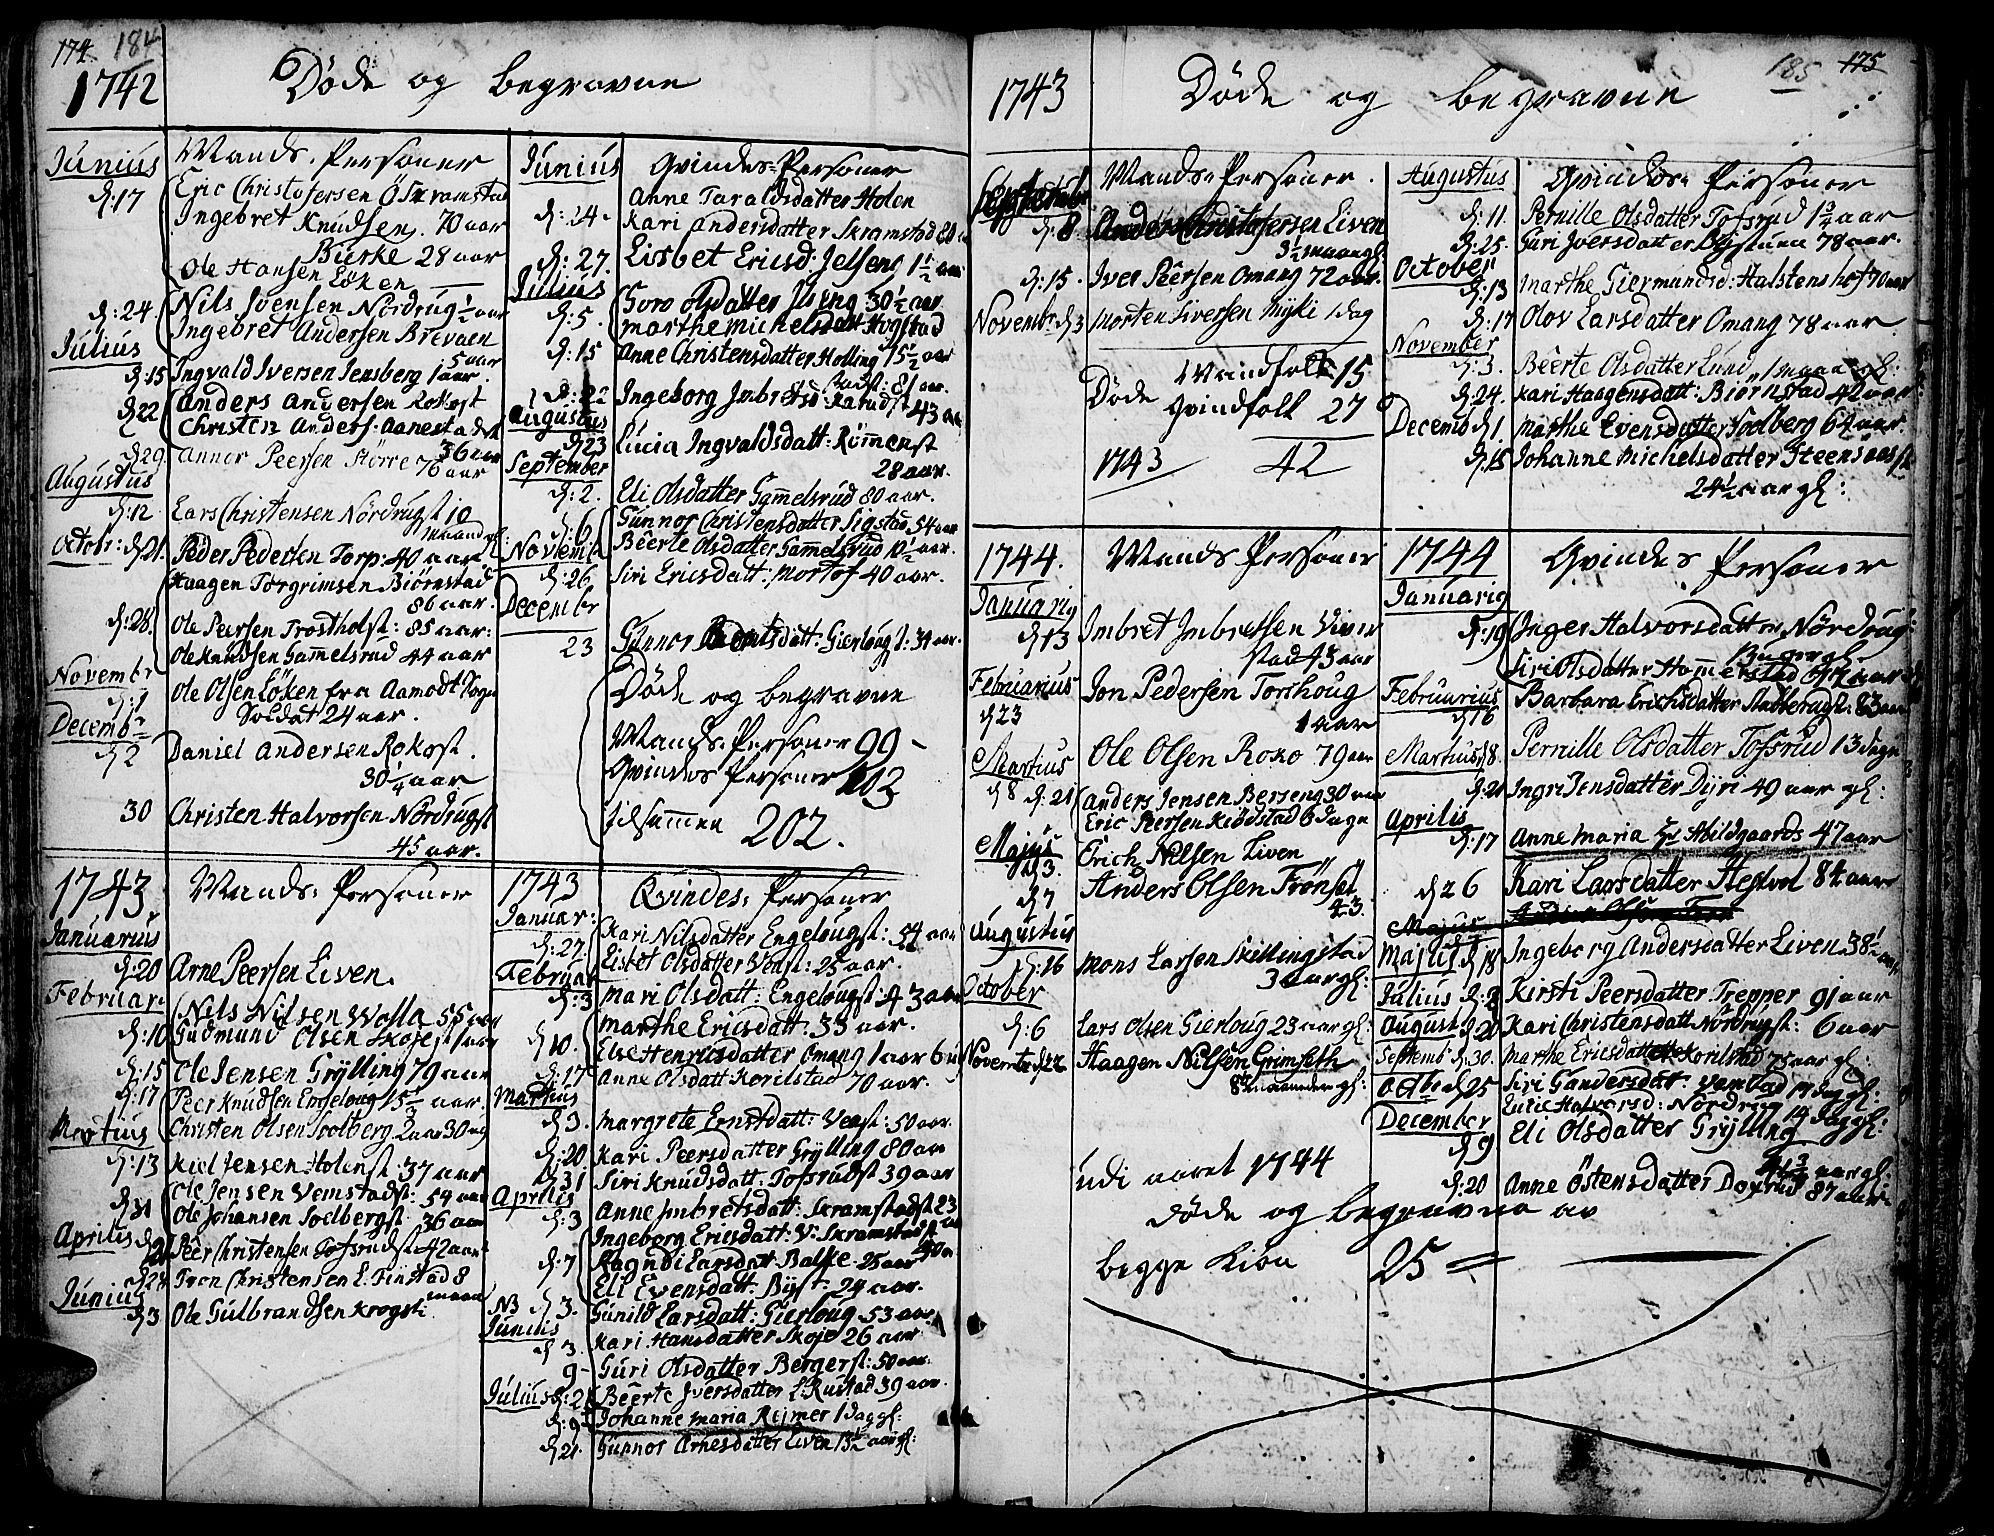 174 184
1742
Døde og begravne
Junius
Mands-Personer
d: 17
Eric Christofersen Ö Skramstad
Ingebret Knudsen 70 aar
Birke 28 aar
Ole Hansen Löken
d: 24
Nils Joensen Nördrug ½ aar
Ingebret Andersen Brevaen
5 aar
Julius
d. 15 Ingvald Iversen Jensberg 1 aar.
d 22 Anders Andersen Rokost
Christen Anders: Aanestadst
36 aar
d 29 Annor Peersen Större 76 aar
Augustus
d: 12 Lars Christensen Nördrugst 10
maan gl:
Octobr: d 21 Peder Pedersen Torp: 40 aar
Haagen Torgrimsen Biörnstad
86 aar.
d: 28 Ole Peersen Trostholst: 85 aar:
Ole Knudsen Gammelsrud 44 aar
Novembr
d: 1 Ole Olsen Löken fra Aamodt Sogn
Soldat 24 aar.
Decemb
d 2 Daniel Andersen Rokost.
30 ¼ aar
30 Christen Halvorsen Nördrugst
45 aar.
Junius
Qvindes-Personer
Anne Taraldsdatter Holen
d: 24 Kari Andersdatter Skramstad 80
d: 27. Lisbet Ericsd: Jelseng 1 ½ aar
Julius
d: 5. Goro Olsdatter Ilseng 30 ½ aar
Marthe Michelsdatt Hogstad
d: 15 Anne Christensdatter Holling 15 ½ aar
d: 22 Ingeborg Imbretsd: Karudst 43 aar
Augustus
d 23 Lucia Ingvaldsdatt: Römenst
28 aar.
September
d: 2. Eli Olsdatter Gamelsrud 80 aar.
d: 6 Gunnor Christensdatter Sigstad 54 aar
Novemb Beerte Olsdatter Gamelsrud 10 ½ aar.
d: 26 Siri Ericsdatt: Mortof 40 aar.
Decembr
23 Gunnor Berntsdatt: Gierlougst: 34 aar.
Døde og begravne
Mands-Personer 99
Qvindes Personer 103
tilsammen 202.
1743
Mands-Personer
Januarius
d: 20 Arne Peersen Liven.
Februar:
Nils Nilsen Wolla 55 aar
d: 10 Gudmund Olsen Skojest 1 aar
d: 15 Ole Jensen Grylling 79 aar
d: 17 Peer Knudsen Engeloug 15 ½ aar.
Martius Christen Olsen Soelberg 2 aar 30 ug
d: 13 Kiel Jensen Holenst: 37 aar
Ole Jensen Vemstadst: 54 aar
d 31 Ole Johansen Soelbergst: 36 aar
Aprilis d 21 Peer Christensen Tofsrudst: 42 aar
d 28 Tron Christensen L: Finstad 8
maan
Junius
d 3 Ole Gulbrandsen Krogsti
1743
Qvindes-Personer
Januar:
d: 27. Kari Nilsdatter Engelougst: 54 aar
Lisbet Olsdatter Venst: 25 aar.
Februar
d: 3 Mari Olsdatt: Engelougst 43 aar
Marthe Ericsdatt: 33 aar.
d 10. Else Henricsdatter Omang 1 aar 6 u
d: 17 Anne Olsdatt Korilstad 70 aar.
Martius
d 3. Margrete Ernstdatt: Venst: 50 aar.
d: 20 Kari Peersdatter Grylling 80 aar
d 31 Siri Knudsdatt: Tofsrudst 39 aar
Aprilis
d: 3 Anne Imbretsdatt: Skramstadst 23
Ingeborg Ericsdatt: V: Skramstadst
d: 7 Ragndi Larsdatt: Balke 25 aar
Eli Evensdatt: Byst: 24 aar.
N3 d 3. Gunild Larsdatt: Gierloug 53 aar
Junius
d 3. Kari Hansdatter Skoje 26 aar
9 - Guri Olsdatter Bergerst: 50 aar.
Julius d: 2 Beerte Iversdatter L: Rustad 39 aar.
d: 9 Johanne Maria Rejmer 1 dag gl:
d 21. Gunnor Arnesdatter Liven 13 ½ aar gl:
185 175
1743
Døde og begravne
September
Mands-Personer.
d. 8 Anders Christofersen Liven
3 ½ maan gl.
d: 15. Iver Peersen Omang 72 aar
Novembr d 3 Morten Siversen Myki 1 dag
Døde Mandfolk 15
Qvindfolk 27
1743 42
Augustus
Qvindes-Personer
d: 11. Pernille Olsdatter Tofsrud 1 ¾ aar
d: 25. Guri Iversdatter Bystuen 78 aar.
October
d: 13 Marthe Giermundsd: Halstenshof 70 aar
d: 17 Olov Larsdatter Omang 78 aar.
November
d: 3. Beerte Olsdatter Lund, 1 maan gl:
d: 24. Kari Haagensdatt: Biörnstad 42 aar
Decemb d 1 Marthe Evensdatter Soelberg 64 aar.
d. 15 Johanne Michelsdatter Steensaasst
24 ½ aar gl:
1744.
Mands Personer
Januarij
d 13 Imbret Imbretsen Viver
stad 43 aar
Februarius Jon Pedersen Torshoug
d 23 1 aar
Martius Ole Olsen Roko 79 aar
d 8
d: 21 Anders Jensen Berseng 30 aar
Eric Peersen Kiödstad 6 dage
Majus
d 3. Erich Nilsen Liven
d 7 Anders Olsen Frönset
43.
Augustus
d: 16 Mons Larsen Skillingstad
3 aar gl:
October
d: 6 Lars Olsen Gierloug 23 aar gl:
Novembr d 22 Haagen Nilsen Grimseth
8 maaneder gl:
udi aaret 1744
døde og begravne av
begge kiøn 25
1744
Qvindes Personer
Januarij
d: 19 Inger Halvorsdatter Nördrug
Siri Olsdatter Hommerstad
Februarius Barbara Erichsdatter Stubberudst: 83 aar
d 16
Martius d 8. Pernille Olsdatter Tofsrud 13 dage
d: 21 Ingri Jensdatter Dyri 49 aar gl:
Aprilis
d: 17 Anne Maria Abildgaards 47 aar
d 26 Kari Larsdatter Hegtvol 84 aar
Majus
Majus d 18 Ingeborg Andersdatter Liven 38 ½ aar
Julius d: 2 Kirsti Peersdatter Trepper 91 aar
August d 20 Kari Christensdatt Nördrugst: 6 aar
Septemb d: 30. Marthe Ericsdatter Korilstad 75 aar gl:
Octbr d 25 Siri Gundersdat: Vemstad 17 dag gl:
Lucie Halvorsd: Nördrug 14 Dag gl:
December
d 9 Eli Olsdatter Grylling
¾ aar gl:
d: 20 Anne Östensdatter Doxrud 87 aar